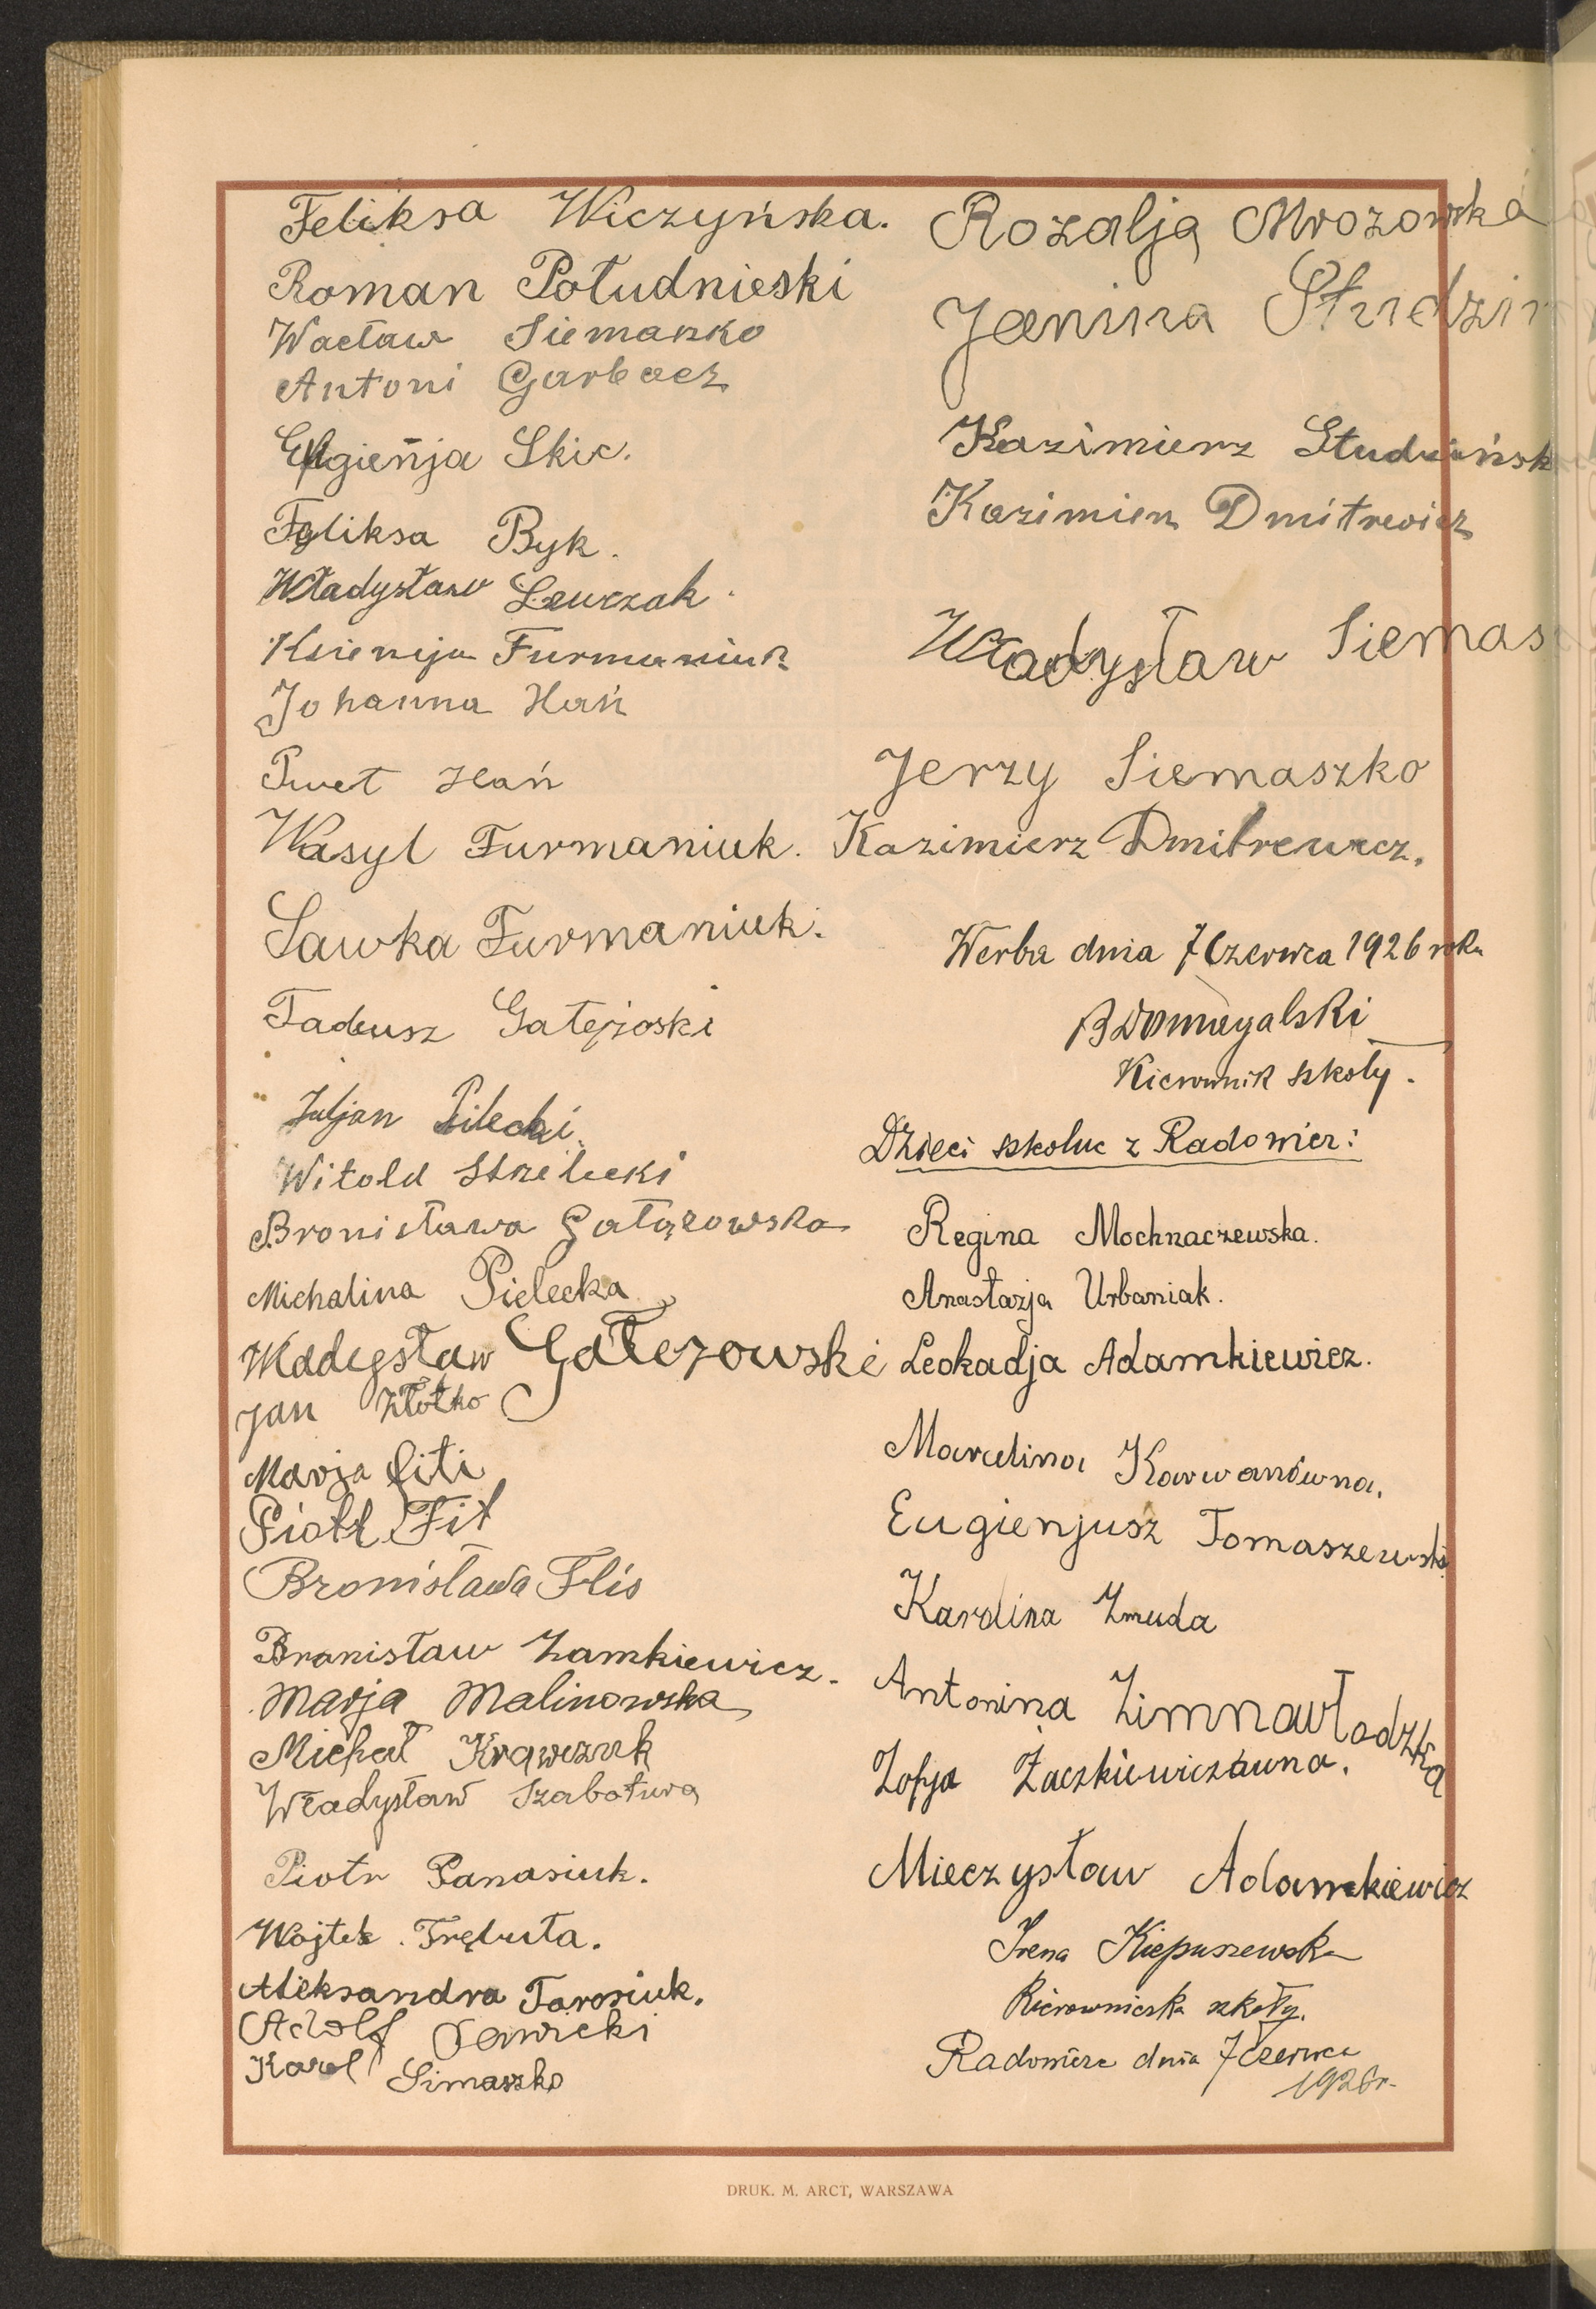 Feliksa Wiczyńska.
Roman Południeski
Wacław Siemaszko
Antoni Garbacz
Eugienja Skic.
Feliksa Byk.
Władysław Lewczak.
Ksienja Furmaniuk
Johanna Hań
Hań
Wasyl Furmaniuk.
Sawka Furmaniuk.
Tadeusz Gałęzoski
Juljan Pilecki.
Witold Strzelecki
Bronisława Gałązowska
Michalina Pielecka
Władysław Gałezowski
Jan Złotko
Marja Fiti
Piotr Fit
Bronisława Flis
Bronisław Zamkiewicz.
Marja Malinowska
Michał Krawczuk
Władysław Szabatura
Piotr Panasiuk.
Wojtek Trębuta.
Aleksandra Tarasiuk.
Adolf Sawicki
Karol Simaszko
Rozalja Mrozowska
Janina Studzin
Kazimierz Studzińsk
Kazimierz Dmitrewicz
Władysław Siemas
Jerzy Siemaszko
Kazimierz Dmitrewicz.
Werba dnia 7 Czerwca 1926 roku
B Domagalski
Kierownik szkoły.
Dzieci szkolne z Radowicz:
Regina Mochnaczewska.
Anastazja Urbaniak.
Leokadja Adamkiewicz.
Marcelina Karwanówna.
Eugienjusz Tomaszewski
Karolina Zmuda
Antonina Zimnawłodzka
Zofja Żaczkiewiczówna.
Mieczysław Adamkiewicz
Irena Kiepuszewska
Kierowniczka szkoły.
Radowicze dnia 7 czerwca
1926 r.
DRUK. M. ARCT, WARSZAWA